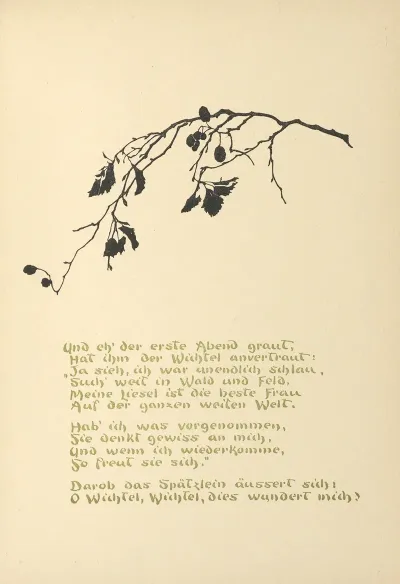 Und eh' der erste Abend graut,
Hat ihm der Wichtel anvertraut:
Ja sieh, ich war unendlich schlau,
"Such' weit in Wald und Feld,
Meine Liesel ist die beste Frau
Auf der ganzen weiten Welt.
Hab' ich was vorgenommen,
Sie denkt gewiss an mich,
Und wenn ich wiederkomme,
So freut sie sich."
Darob das Spätzlein äussert sich:
O Wichtel, Wichtel, dies wundert mich?